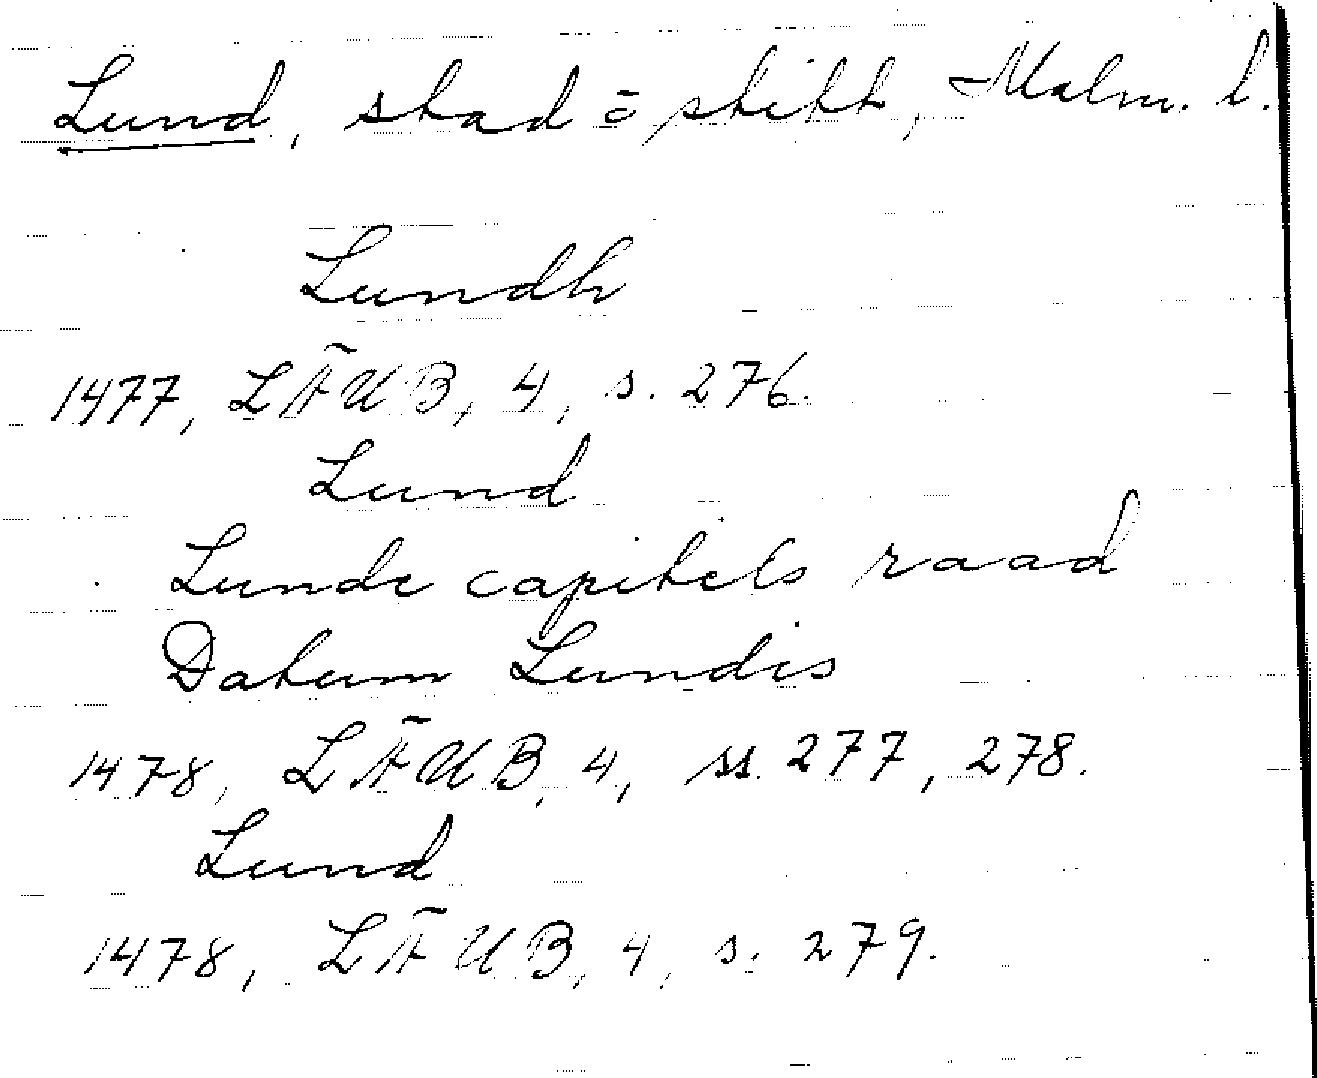 Lund, stad o stift, Malm. l.
Lundh
1477, LÄUB, 4, s. 276.
Lund
Lunde capitels raad
Datum Lundis
1478, LÄUB, 4, ss. 277, 278.
Lund
1478, LÄUB, 4, s. 279.